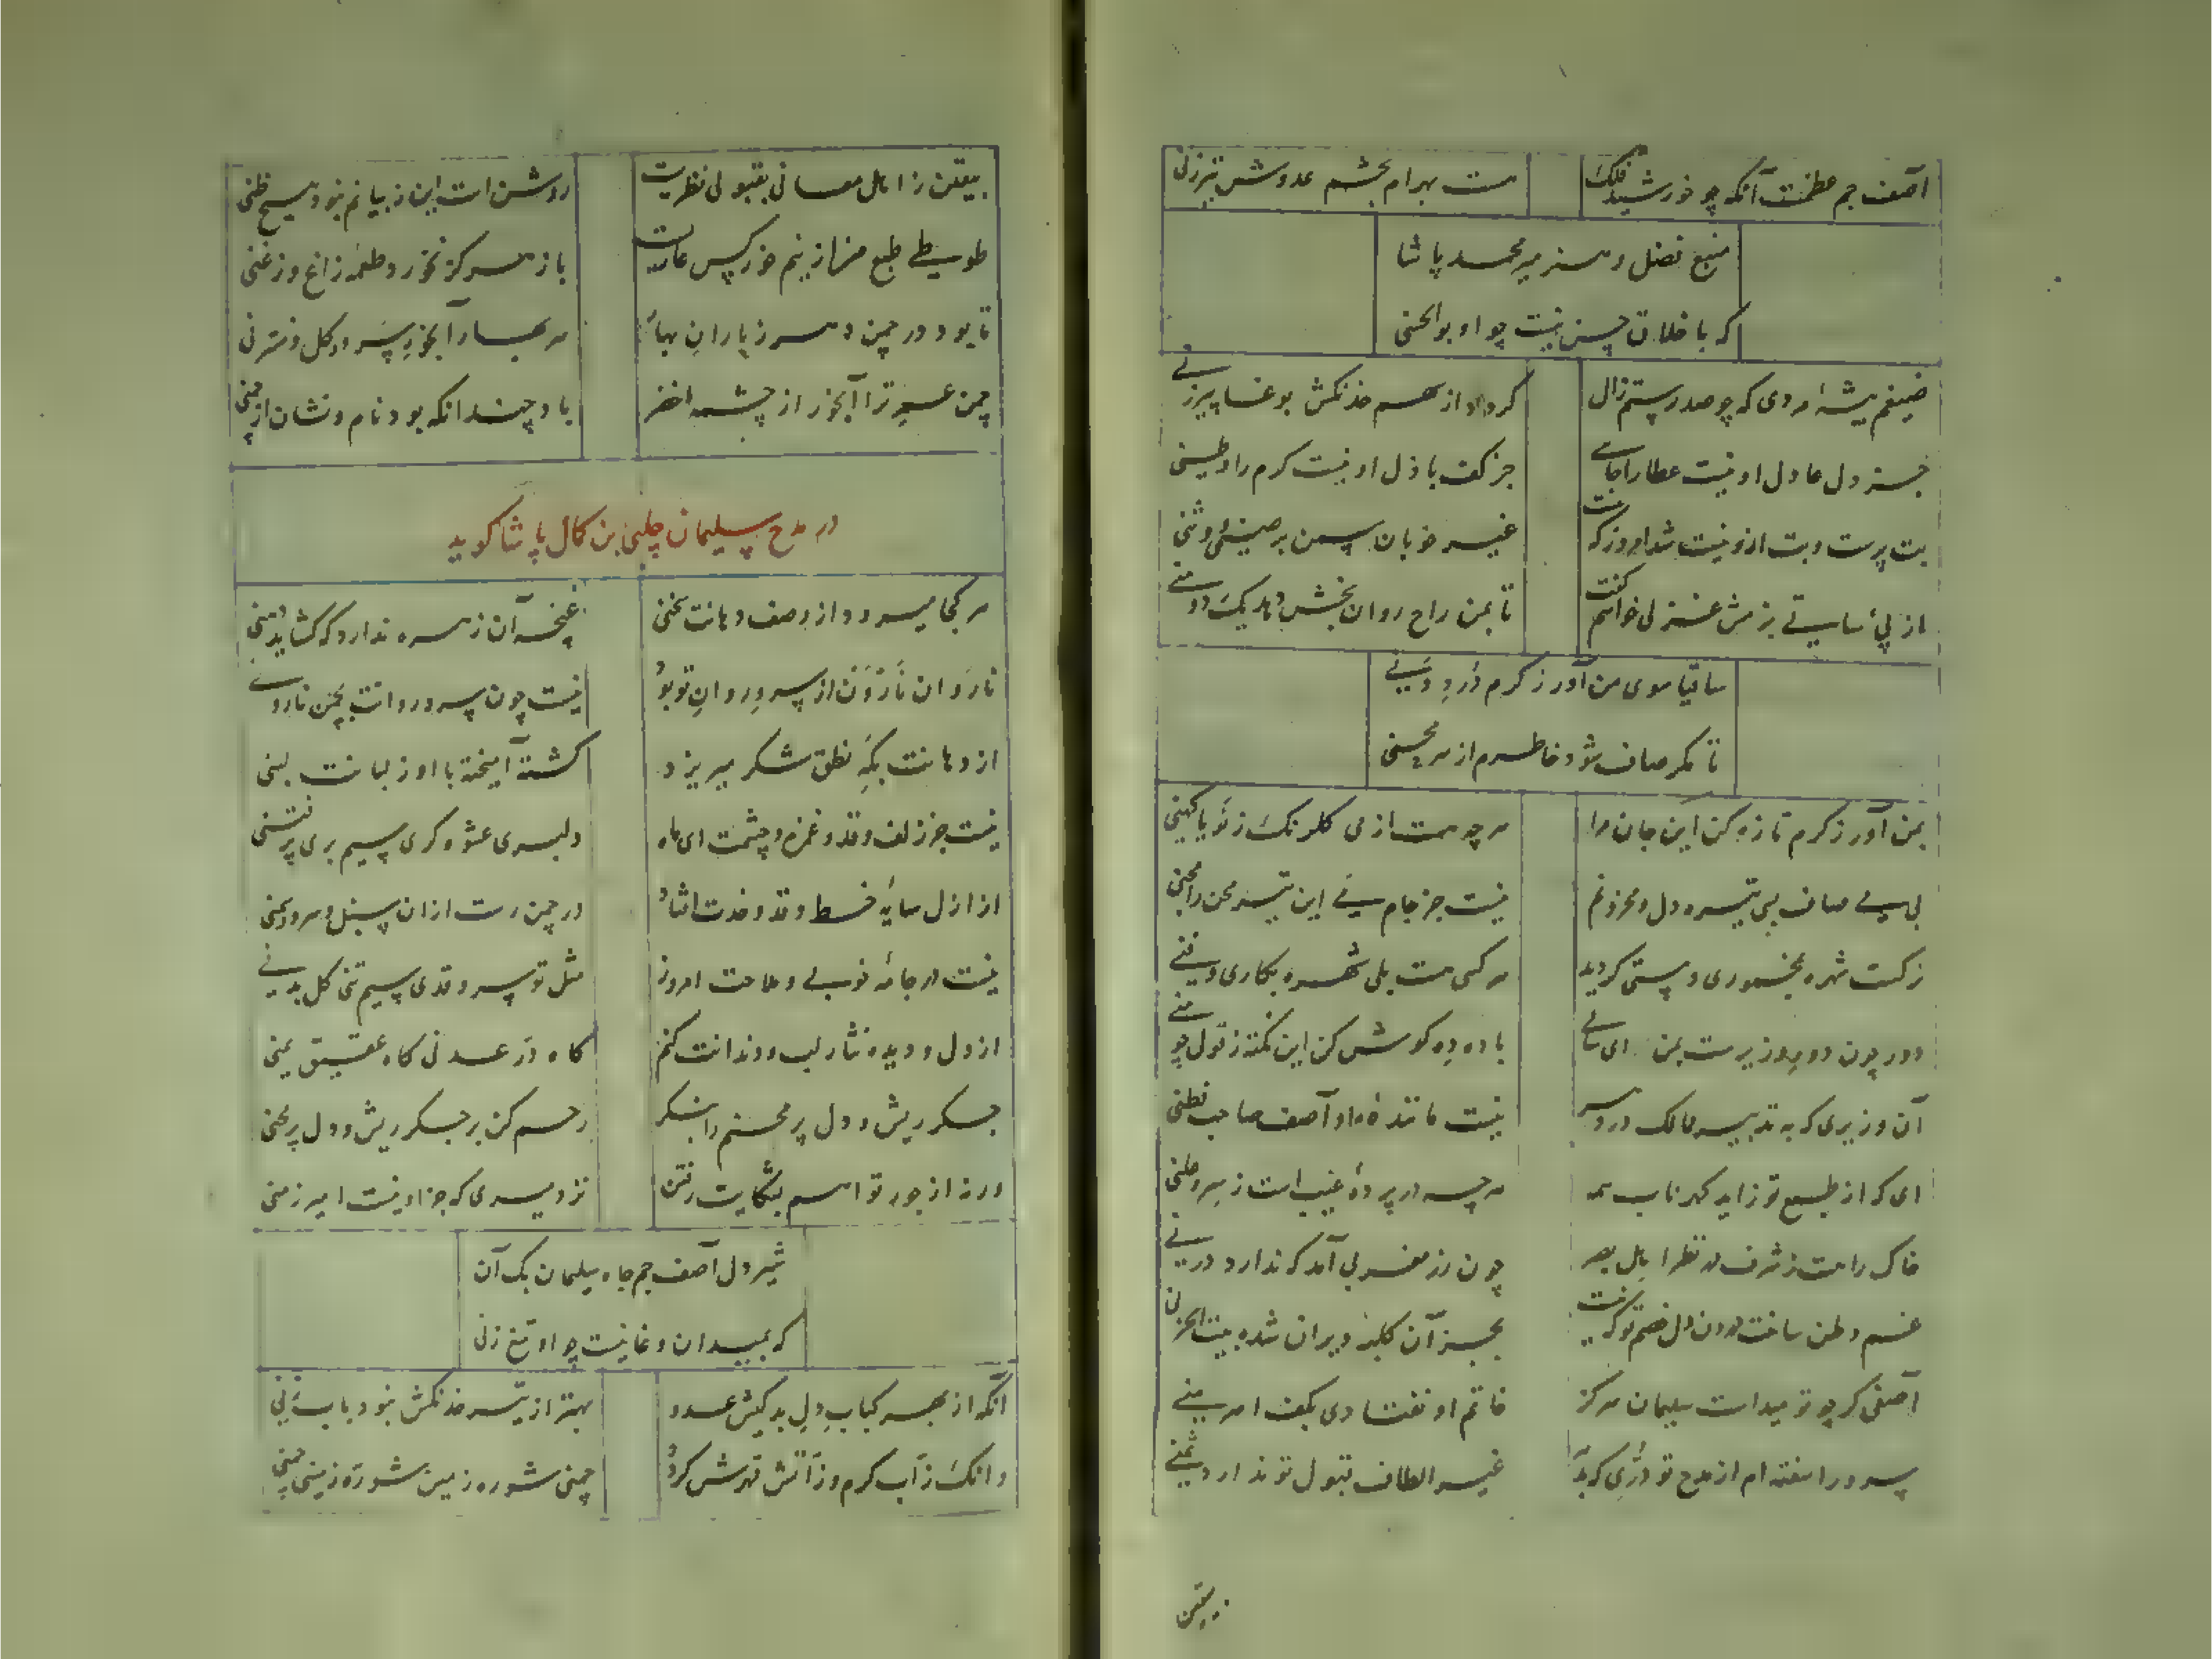 آصف جم عظمت آنکه چو خورشید فلک
هست بهرام بچشم عدوش تیرزنی
منبع فضل و هنر میر محمد پاشا
که باخلاق حسن نیست چو او بوالحسنی
ضیغم بیشهٔ مردی که چو صد رستم زال
کرد از سهم خدنکش بوغا پیرزنی
جز دل عادل او نیست عطا را جایی
جز کف باذل او نیست کرم را وطنی
بت پرست و بت ازو نیست شد امروز که نیست
غیر خوبان سمن بر صنمی و وثنی
از پی ساقی بزمش غزلی خواهم گفت
تا بمن راح روان بخش دهد یک دو منی
ساقیا سوی من آور ز کرم درد دنی
تا مکر صاف شود خاطرم از هر محنی
بمن آور ز کرم تازه کن این جان مرا
هر چه هست از می کلرنک ز نو یا کهنی
بی می صاف بسی تیره دل و محزونم
نیست جز جام می این تیر محن را مجنی
زکست شهره بمخموری و مستی کردید
هر کسی هست بلی شهره بکاری و فنی
دور چون دور وزیرست بمن ای ساقی
باده ده کوش کن این نکته ز قول چو منی
آن وزیری که به تدبیر ممالک در دهر
نیست مانندهٔ او آصف صاحب فطنی
ای که از طبع تو زاید کهر ناب همه
هر چه در پردهٔ غیب است ز سر و علنی
خاک راهت ز شرف در نظر اهل بصر
چون زر مغربی آمد که ندارد درنی
غم وطن ساخت درون دل خصم تو که نیست
بجز آن کلبهٔ ویران شده بیت الحزنی
آصفی کر چو تو میداشت سلیمان هرکز
خاتم او نفتادی بکف اهرمنی
سرورا سفته ام از مدح تو دری که بدر
غیر الطاف قبول تو ندارد ثمنی
بیقین
بیقین زاهل معانی بقبولی نظریت
روشن است این ز بیانم نبود هیچ ظنی
طوطی طبع مرا زین خور کس عارست
باز هرکز نخورد طعمه زاغ و زغنی
تا بود در چمن دهر ز باران بهار
هر بهار آبخور سرو و کل و نسترنی
چمن عمر ترا آبخور از چشمه اخضر
باد چندانکه بود نام و نشان از چمنی
در مدح سلیمان چلبی بن کمال پاشا کوید
هر کجا میرود از وصف دهانت سخنی
غنچه آن زهره ندارد که کشاید دهنی
نارَوان نارَوَن از سرو روان تو بود
نیست چون سرو روانت بچمن نارونی
از دهانت بکه نطق شکر میریزد
کشته آمیخته با او ز لبانت لبنی
نیست جز زلف و قد و غمزه و چشمت ای ماه
دلبری عشوه کری سیم بری پر فتنی
از ازل سایه خط و قد و خدت افتاد
در چمن رست ازان سنبل و سرو و سمنی
نیست در جامهٔ خوبی و ملاحت امروز
مثل تو سرو قدی سیم تنی کل بدنی
از دل و دیده نثار لب و دندانت کنم
کاه در عدنی کاه عقیق یمنی
جکر ریش و دل پر محنم را بنکر
رحم کن بر جکر ریش و دل پر محنی
ورنه از جور تو ام بشکایت رفتن
نزد میری که جز او نیست امیر زمنی
شیر دل آصف جم جاه سلیمان بک آن
که بمیدان وغا نیست چو او تیغ زنی
آنکه از بهر کباب دل بدکیش عدو
بهتر از تیر خدنکش نبود باب زنی
وانک ز آب کرم و ز آتش قهرش کردد
چمنی شوره زمین شوره زمینی چمنی